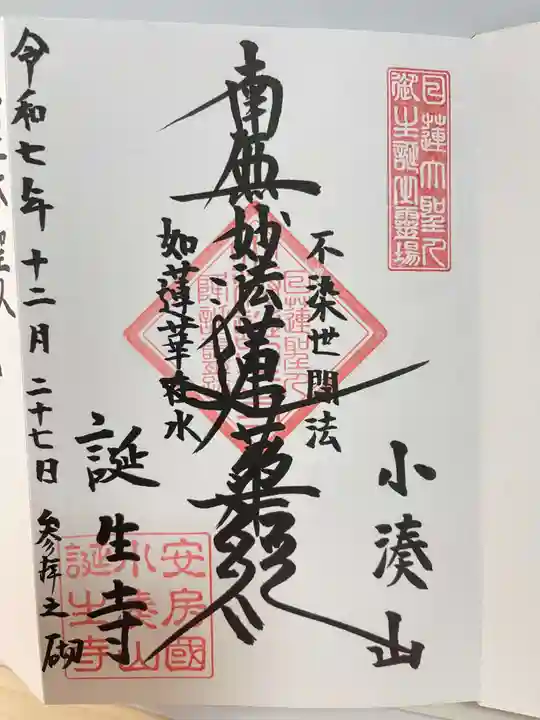 日蓮大聖人
御生誕之霊場
小湊山
不染世間法
南無妙法蓮華経
如蓮華在水
誕生寺
安房國
小湊山
誕生寺
令和七年十二月二十七日 参拝之砌